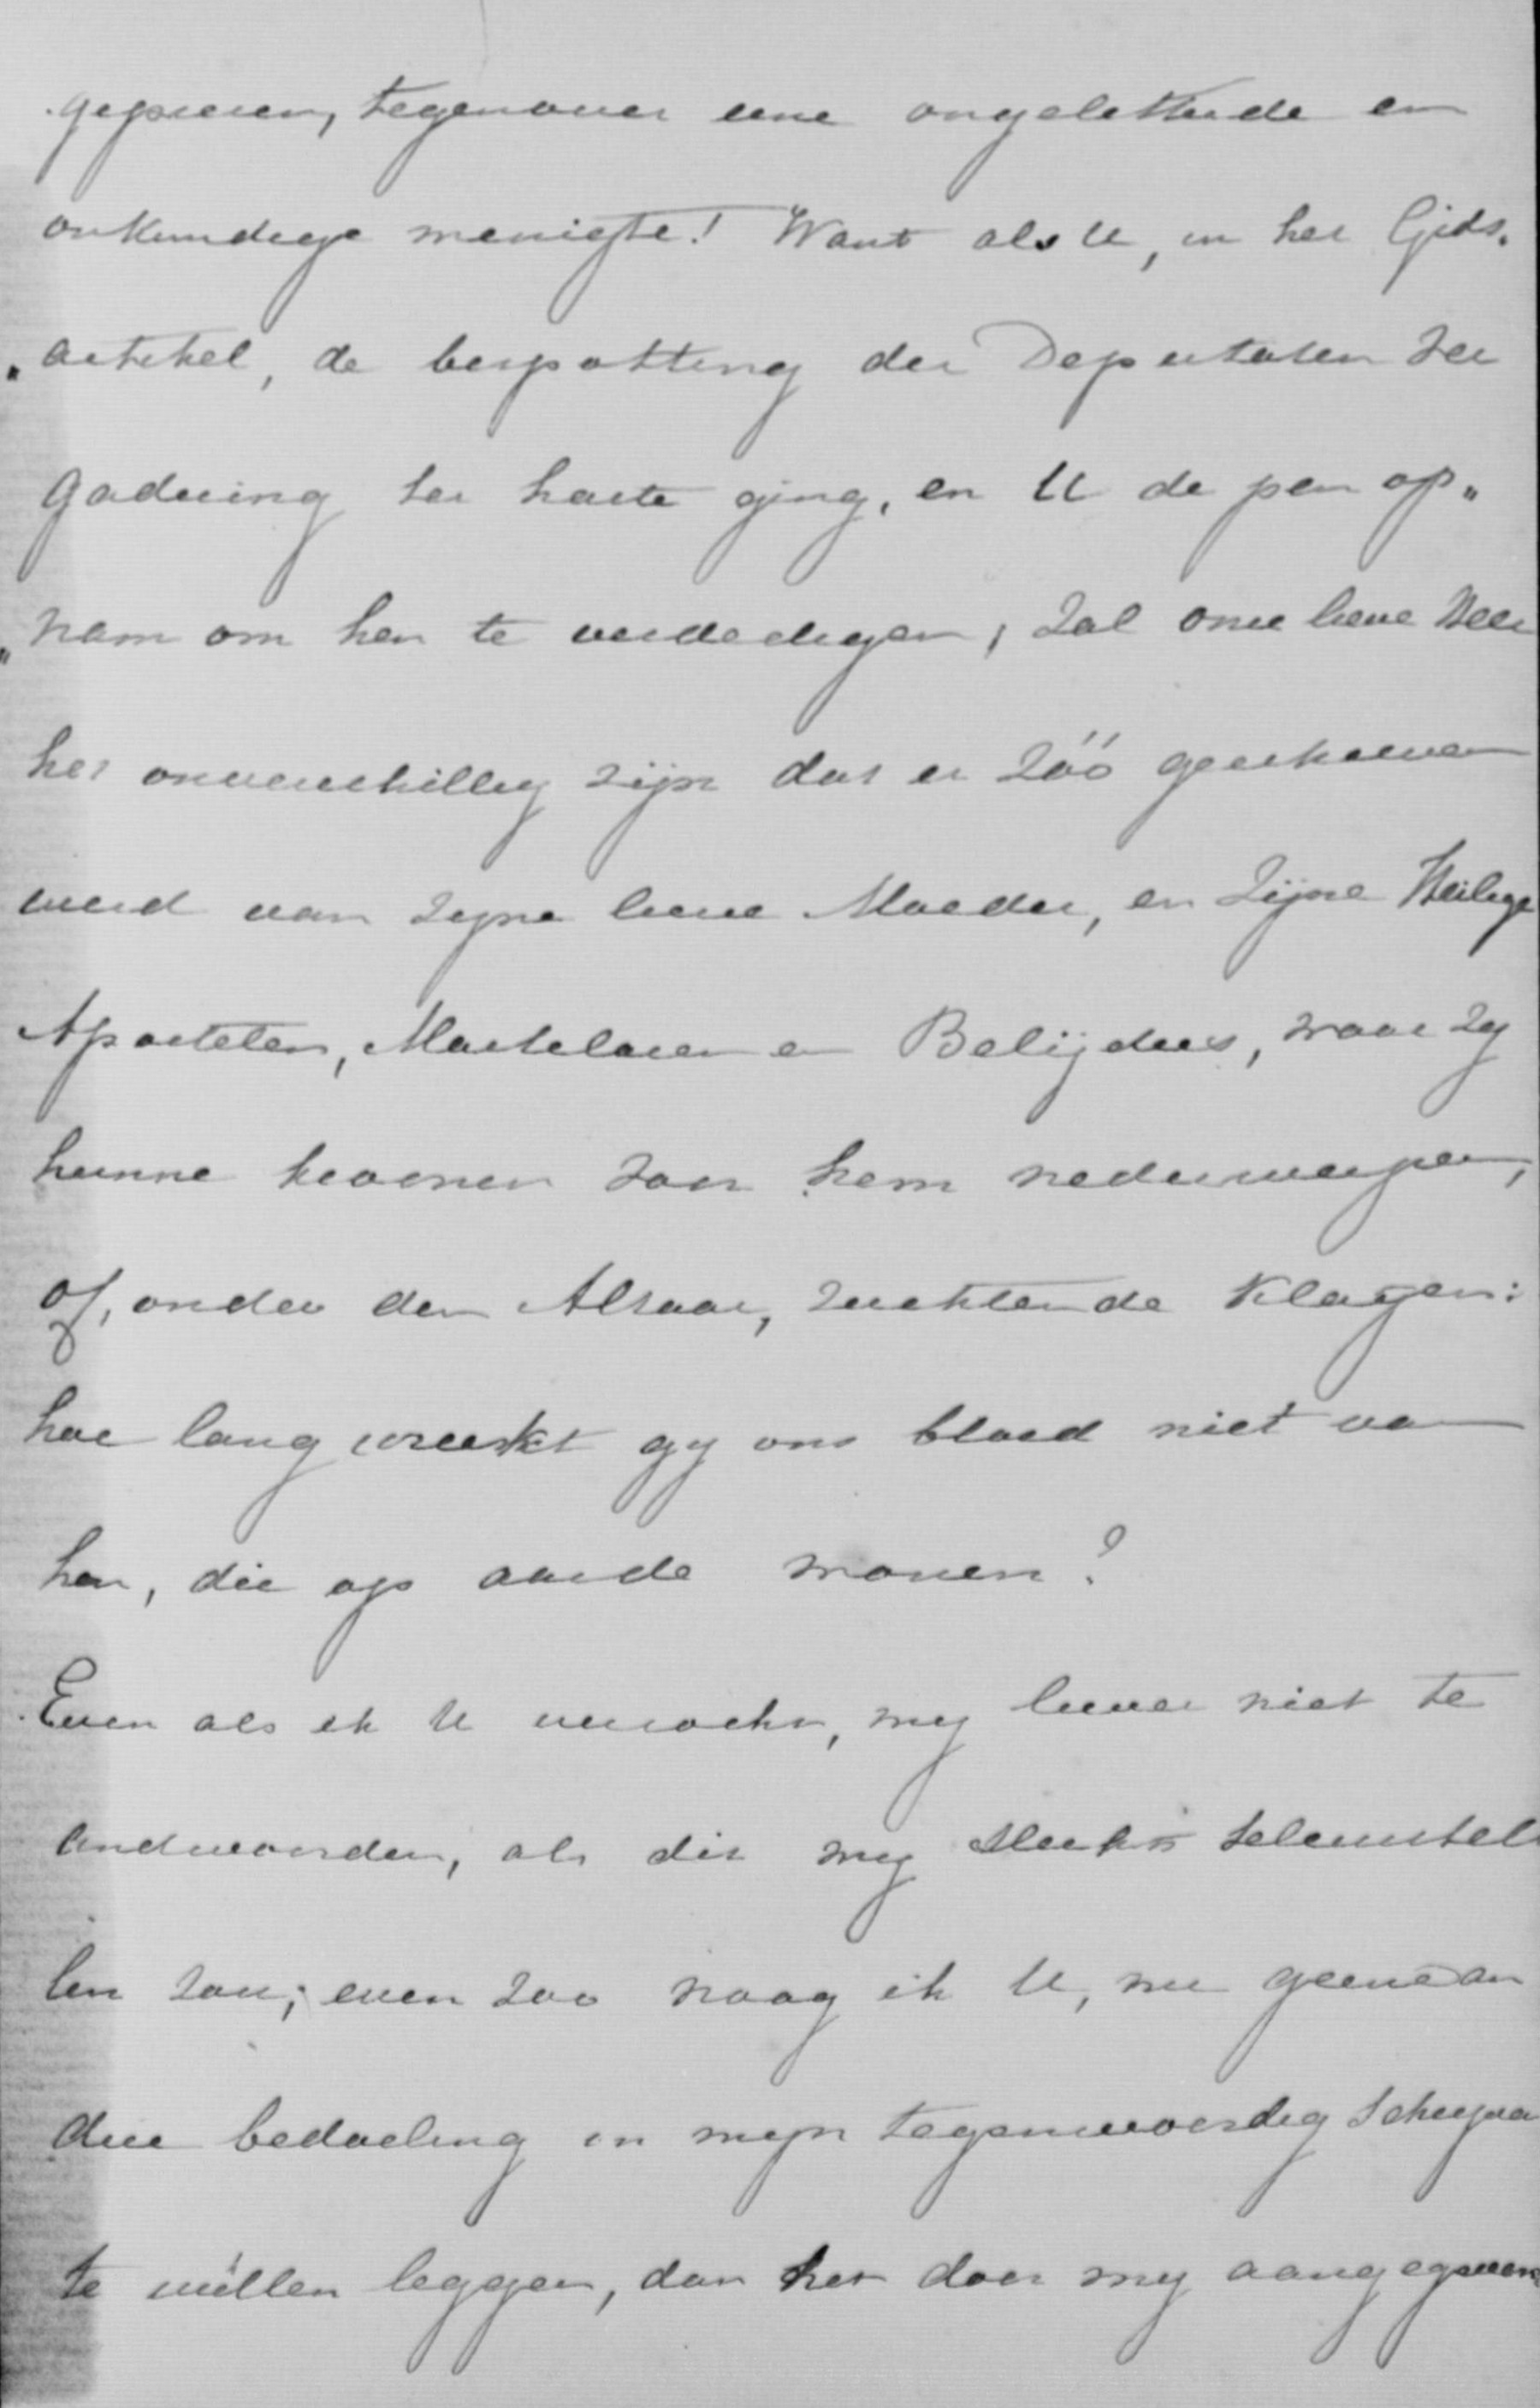 gegeven, tegenover eene ongeletterde en
onkundige menigte! Want als U, in het Gids„
„artikel, de bespotting der Deputaten der
gadering ter harte ging, en U de pen op„
„nam om hen te verdedigen, zal onze lieve Heer
het onverschillig zijn dat er zóó geschreven
werd van zyne lieve Moeder, en Zijne Heilige
Apostelen, Martelaren en Belijders, waar zy
hunne kroonen voor hem nederwerpen,
of, onder den Altaar, zuchtende klagen:
hoe lang wreekt gy ons bloed niet van
hen, die op aarde wonen?
Even als ik U verzocht, my liever niet te
andwoorden, als dit my slechts teleurstel
len zou; even zoo vraag ik U, nu geene an
dere bedoeling in myn tegenwoordig schryven
te willen leggen, dan het door my aangegeven